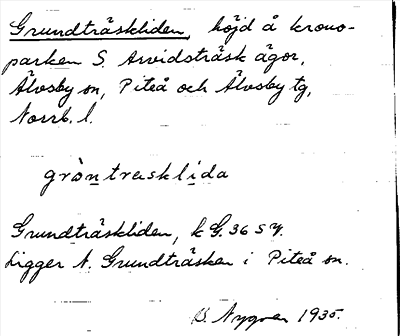 Grundträskliden, höjd å krono-
parken S. Arvidsträsk ägor,
Älvsby sn, Piteå och Älvsby tg,
Norrb. l.
gròntrasklida
Grundträskliden, k G. 36 S Y.
Ligger N. Grundträsken i Piteå sn.
Nygren 1935.